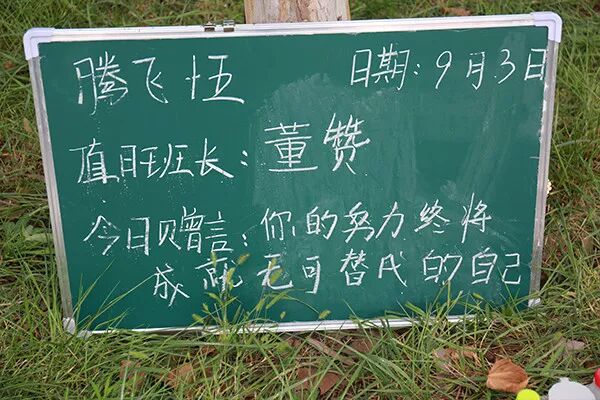 腾飞十五 日期：9月3日
值日班长：董赞
今日赠言：你的努力终将
成就无可替代的自己